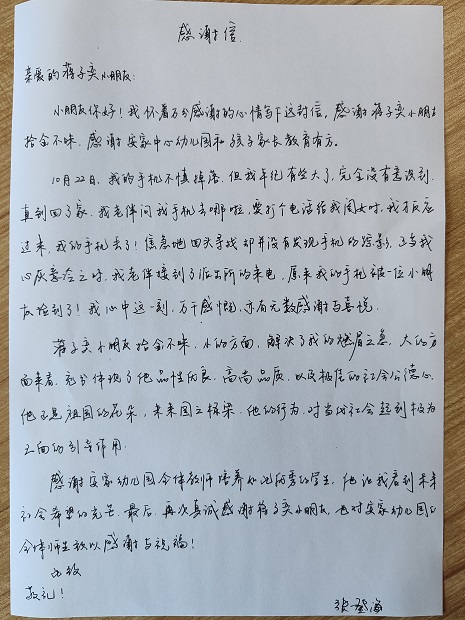 感谢信
亲爱的蒋子奕小朋友:
小朋友你好!我怀着万分感谢的心情写下这封信,感谢蒋子奕小朋友
拾金不昧,感谢安家中心幼儿园和孩子家长教育有方。
10月22日,我的手机不慎掉落,但我年纪有些大了,完全没有意识到,
直到回了家,我老伴问我手机去哪啦,要打个电话给我闺女时,我才反应
过来,我的手机丢了!焦急地回头寻找却并没有发现手机的踪影,正当我
心灰意冷之时,我老伴接到了派出所的来电,原来我的手机被一位小朋
友捡到了!我心中这一刻,万千感慨,亦有无数感谢与喜悦。
蒋子奕小朋友拾金不昧,小的方面,解决了我的燃眉之急,大的方
面来看,充分体现了他品性优良,高尚品质,以及极佳的社会公德心。
他正是祖国的花朵,未来国之栋梁。他的行为,对当代社会起到极为
正面的引导作用。
感谢安家幼儿园全体教师培养如此优秀的学生,他让我看到未来
社会希望的光芒。最后,再次真诚感谢蒋子奕小朋友,也对安家幼儿园的
全体师生致以感谢与祝福!
此致
敬礼!
张登海